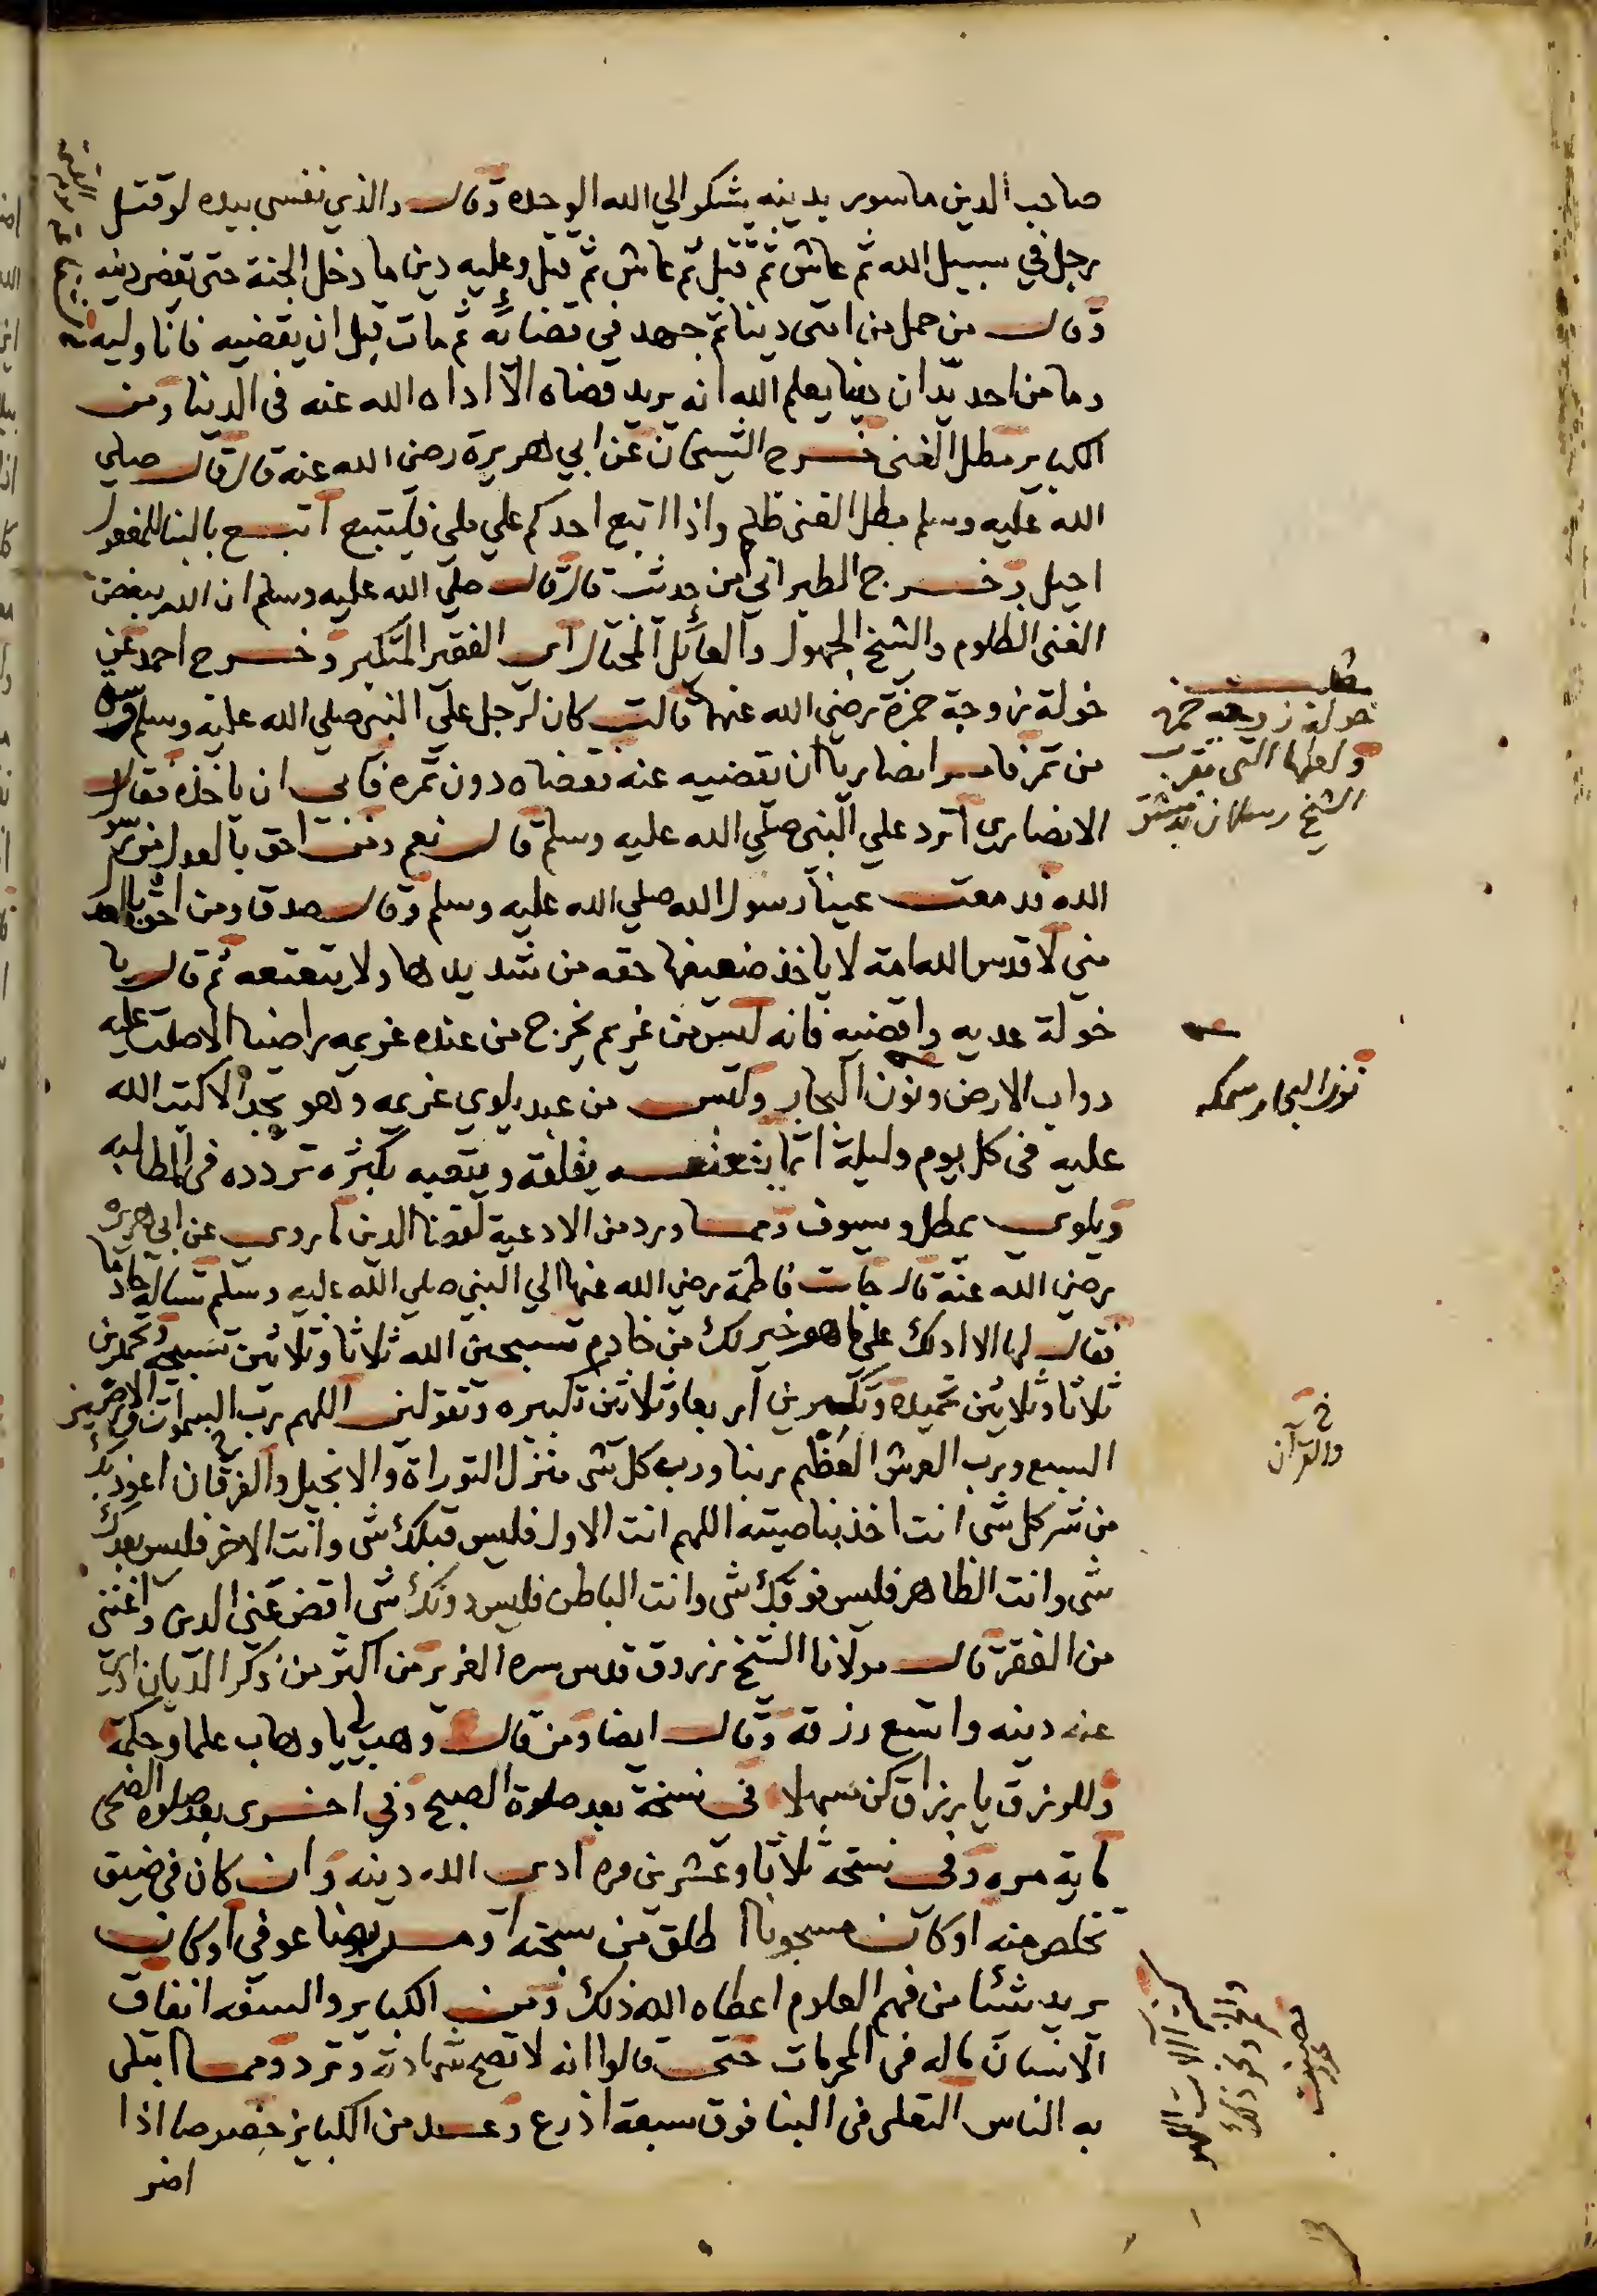 صاحب الدين ماسور بدينه يشكو الي الله الوحده وقال والذي نفسي بيده لو قتل
رجل في سبيل الله ثم عاش ثم قتل ثم عاش ثم قتل وعليه دين ما دخل الجنة حتى يقضى دينه
وقال من حمل من امتى دينا ثم جهد في قضائه ثم مات قبل ان يقضيه فانا وليه
وما من احد يدان دينا يعلم الله انه يريد قضاه الا اداه الله عنه فى الدنيا ومن
الكباير مطل الغنى خرج الشيخان عن ابي هريرة رضى الله عنه قال قال صلي
الله عليه وسلم مطل الغنى ظلم واذا اتبع احدكم علي ملى فليتبع اتبع بالبنا للمفعول
احيل وخرج الطبرانى من حديث قال قال صلي الله عليه وسلم ان الله يبغض
الغنى الظلوم والشيخ الجهول والعائل المختال اى الفقير المتكبر وخرج احمد عن
خولة زوجة حمزة رضى الله عنهما قالت كان لرجل علي النبى صلي الله عليه وسلم وسق
من تمر فامر انصاريا ان يقضيه عنه فقضاه دون تمره فابى ان ياخذه فقال
الانصارى اترد علي النبى صلي الله عليه وسلم قال نعم ومن احق بالعدل من رسول
الله فدمعت عينا رسول الله صلي الله عليه وسلم وقال صدق ومن احق بالعدل
منى لا قدس الله امة لا ياخذ ضعيفها حقه من شديدها ولا يتعتعه ثم قال يا
خولة عديه واقضيه فانه ليس من غريم يخرج من عنده غريمه راضيا الا صلت عليه
دواب الارض ونون البحار وليس من عبد يلوى غريمه وهو يجد الا كتب الله
عليه فى كل يوم وليلة اثما يتعتعه يقلقه ويتعبه بكثره تردده فى المطالبه
ويلوى يمطل ويسوف ومما ورد من الادعية لقضا الدين ما روى عن ابى هريره
رضى الله عنه قال جات فاطمة رضى الله عنها الي النبى صلي الله عليه وسلم تساله خادما
فقال لها الا ادلك على ما هو خير لك من خادم تسبحين الله ثلاثا وثلاثين تسبيحه وتحمدين
ثلاثا وثلاثين تحميده وتكبرين اربعا وثلاثين تكبيره وتقولين اللهم رب السموات والارضين
السبع ورب العرش العظيم ربنا ورب كل شى منزل التوراة والانجيل والفرقان اعوذ بك
من شر كل شى انت اخذ بناصيته اللهم انت الاول فليس قبلك شى وانت الاخر فليس بعدك
شى وانت الظاهر فليس فوقك شى وانت الباطن فليس دونك شى اقض عنى الدين واغننى
من الفقر قال مولانا الشيخ زروق قدس سره العزيز من اكثر من ذكر الديان ادى
عنه دينه واتسع رزقه وقال ايضا ومن قال وهب لي يا وهاب علما وحكمة
وللرزق يا رزاق كن مسهلا فى نسخة بعد صلوة الصبح وفي اخرى بعد صلوة الضحى
ماية مره وفى نسخة ثلاثا وعشرين مره ادى الله دينه وان كان في ضيق
تخلص منه او كان مسجونا اطلق من سجنه او مريضا عوفي او كان
يريد شئا من فهم العلوم اعطاه الله ذلك ومن الكباير والسفه انفاق
الانسان ماله فى المحرمات حتى قالوا انه لا تصح شهادته وترد ومما ابتلى
به الناس التعلى فى البنا فوق سبعة اذرع وعد من الكباير خصوصا اذا
اضر
مطلب
خولة زوجه حمزه
ولعلها التى بقرب
الشيخ رسلان بدمشق
نون البحار سمكه
خ
والقرآن